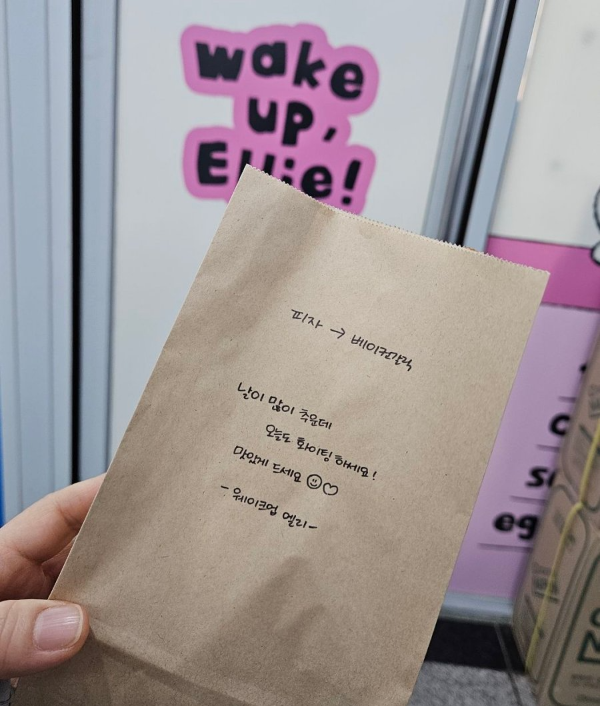 wake
up,
Ellie!
피자 → 베이컨갈릭
날이 많이 추운데
오늘도 화이팅 하세요!
맛있게 드세요 ☺♡
- 웨이크업 엘리 -